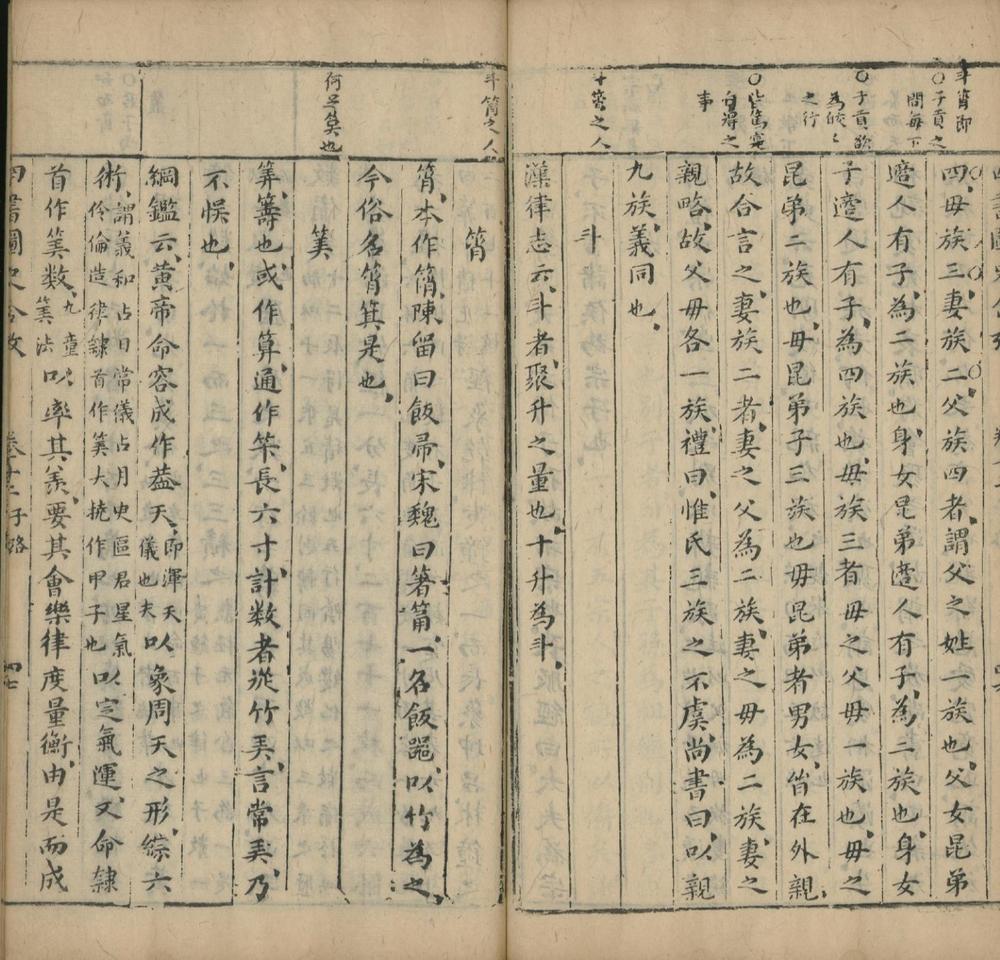 斗筲即
○子貢之
問每下
○子貢欲
為皎皎
之行
○皆篤實
自得之
事
斗筲之人
四毋族三妻族二父族四者謂父之姓一族也父女昆弟
適人有子為二族也身女昆弟適人有子為三族也身女
子適人有子為四族也毋族三者毋之父毋一族也毋之
昆弟二族也毋昆弟子三族也毋昆弟者男女皆在外親
故合言之妻族二者妻之父為二族妻之毋為二族妻之
親略故父毋各一族禮曰惟氏三族之不虞尚書曰以親
九族義同也
斗
漢律志云斗者聚升之量也十升為斗
斗筲之人
何足筭也
筲
筲本作䈰陳留曰飯帚宋魏曰箸筩一名飯器以竹為之
今俗名筲箕是也
筭
筭籌也或作算通作筞長六寸計數者從竹弄言常弄乃
不悞也
綱鑑云黃帝命容成作蓋天即渾天儀也夫以象周天之形綜六
術謂羲和占日常儀占月㬰區君星氣伶倫造律隸首作筭大撓作甲子也以定氣運又命隸
首作筭數九章筭法以率其羨要其會樂律度量衡由是而成
四書圖史合攷
卷十三子路
四七